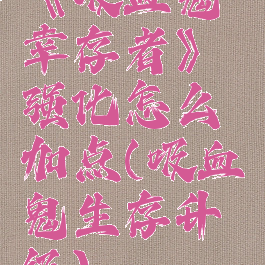 《吸血鬼
幸存者》
强化怎么
加点(吸血
鬼生存升
级)